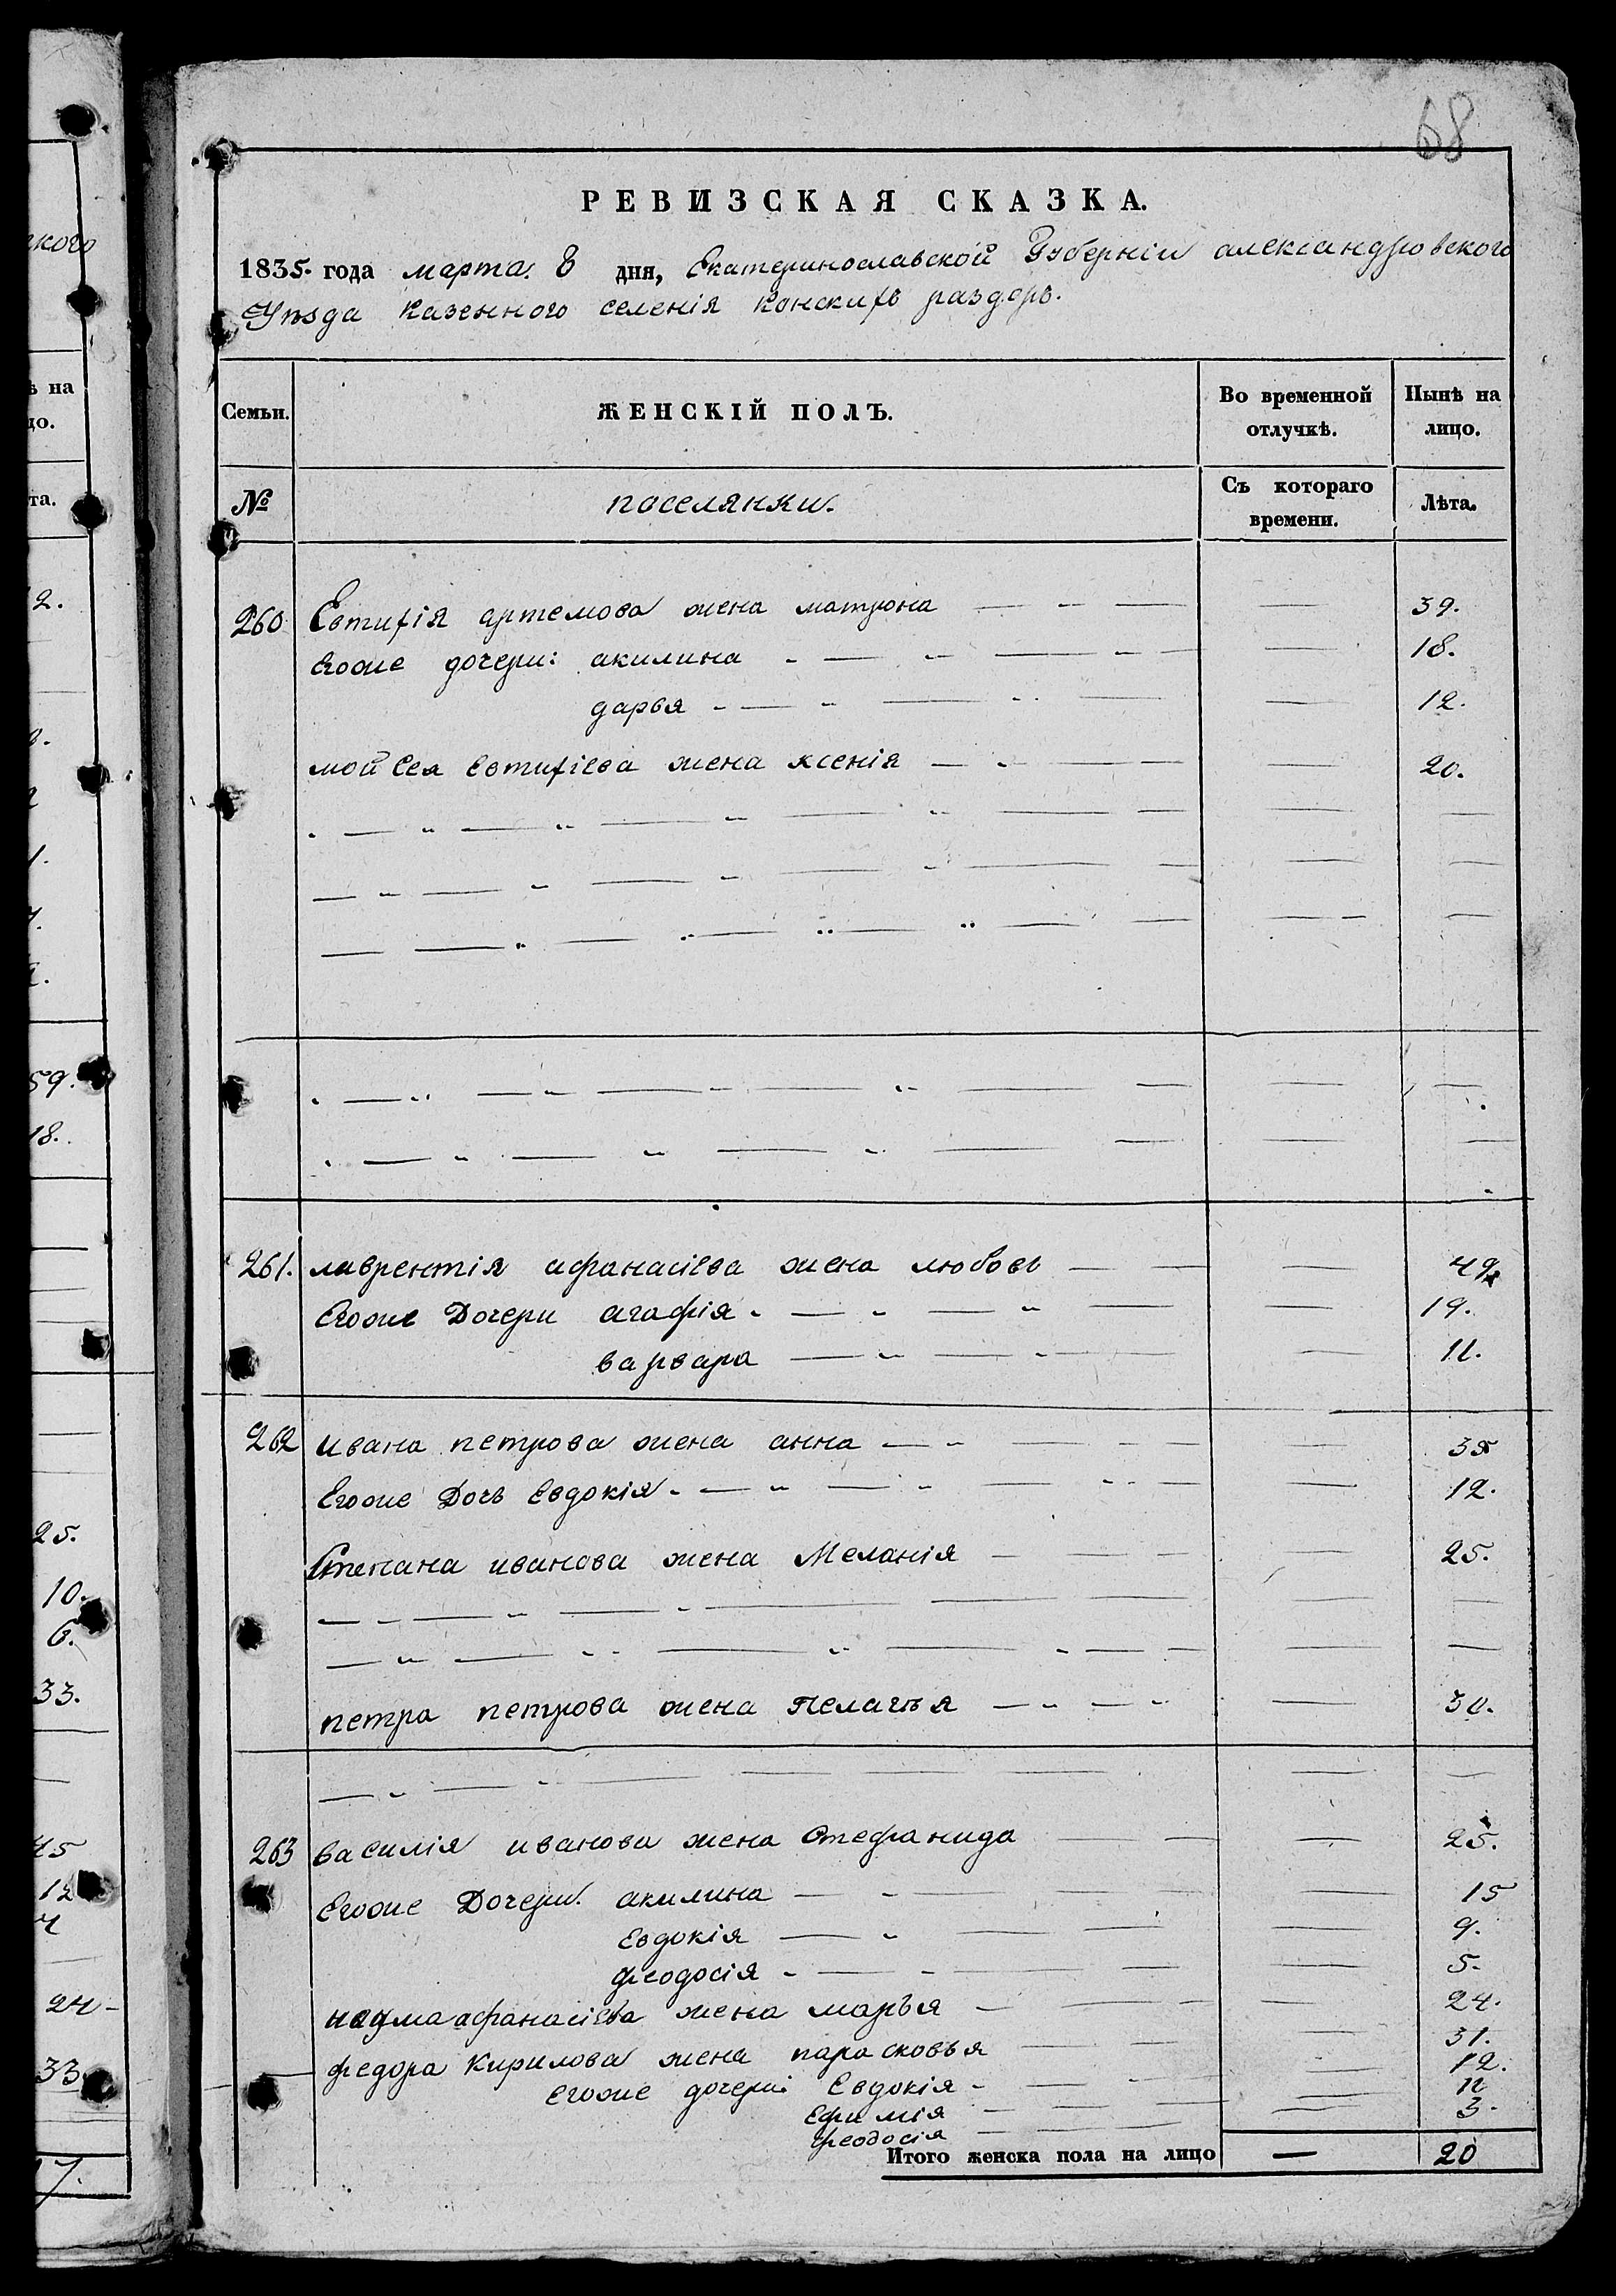 68
РЕВИЗСКАЯ СКАЗКА.
1835. года марта. 8 дня, Екатеринославской Губерніи александровского
Уѣзда Казенного селенія Конскихъ раздоръ.
Семьи. ЖЕНСКІЙ ПОЛЪ. Во временной отлучкѣ. Нынѣ на лицо.
№ поселянки. Съ котораго времени. Лѣта.
260 Евтихія артемова жена матрона 39.
Егоже дочери: акилина 18.
дарья 12.
мойсея Евтихіева жена ксенія 20.
261. лаврентія афанасіева жена любовь 49
Егоже Дочери агафія 19.
варвара 11.
262 ивана петрова жена анна 35
Егоже Дочь Евдокія 12.
Степана иванова жена Меланія 25.
петра петрова жена Пелагѣя 30.
263 василія иванова жена Стефанида 25.
Егоже Дочери. акилина 15
Евдокія 9.
феодосія 5.
наума афанасіева жена марья 24.
федора Кирилова жена парасковья 31.
Егоже дочери: Евдокія 12.
Ефимія 11
феодосія 3.
Итого женска пола на лицо — 20
кого
ѣ на
цо.
та.
2.
59.
18.
25.
10.
6.
33.
45
12
4
24
33
17.